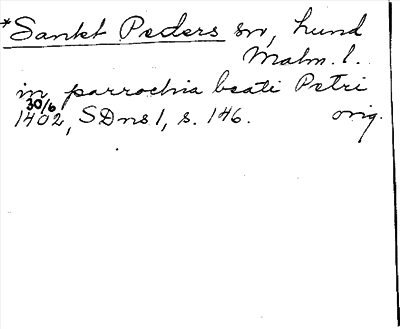 *Sankt Peders sn, hund
Malm. l.
in parrochia beati Petri
30/6
1402, SDns 1, s. 146. orig.